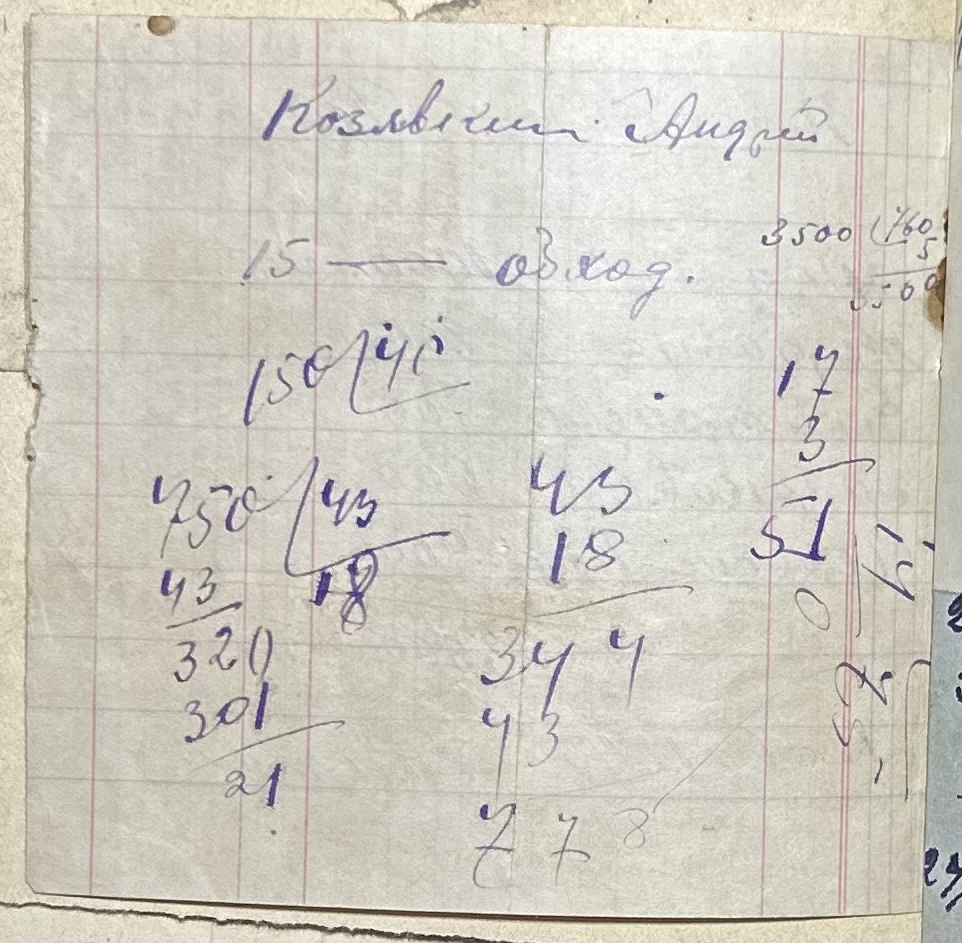 Козявкин Андрій
15 — обход.
3500 (760
5
3500
150 40
17
3
51
0
750 43
18
43
320
301
21
43
18
344
43
778